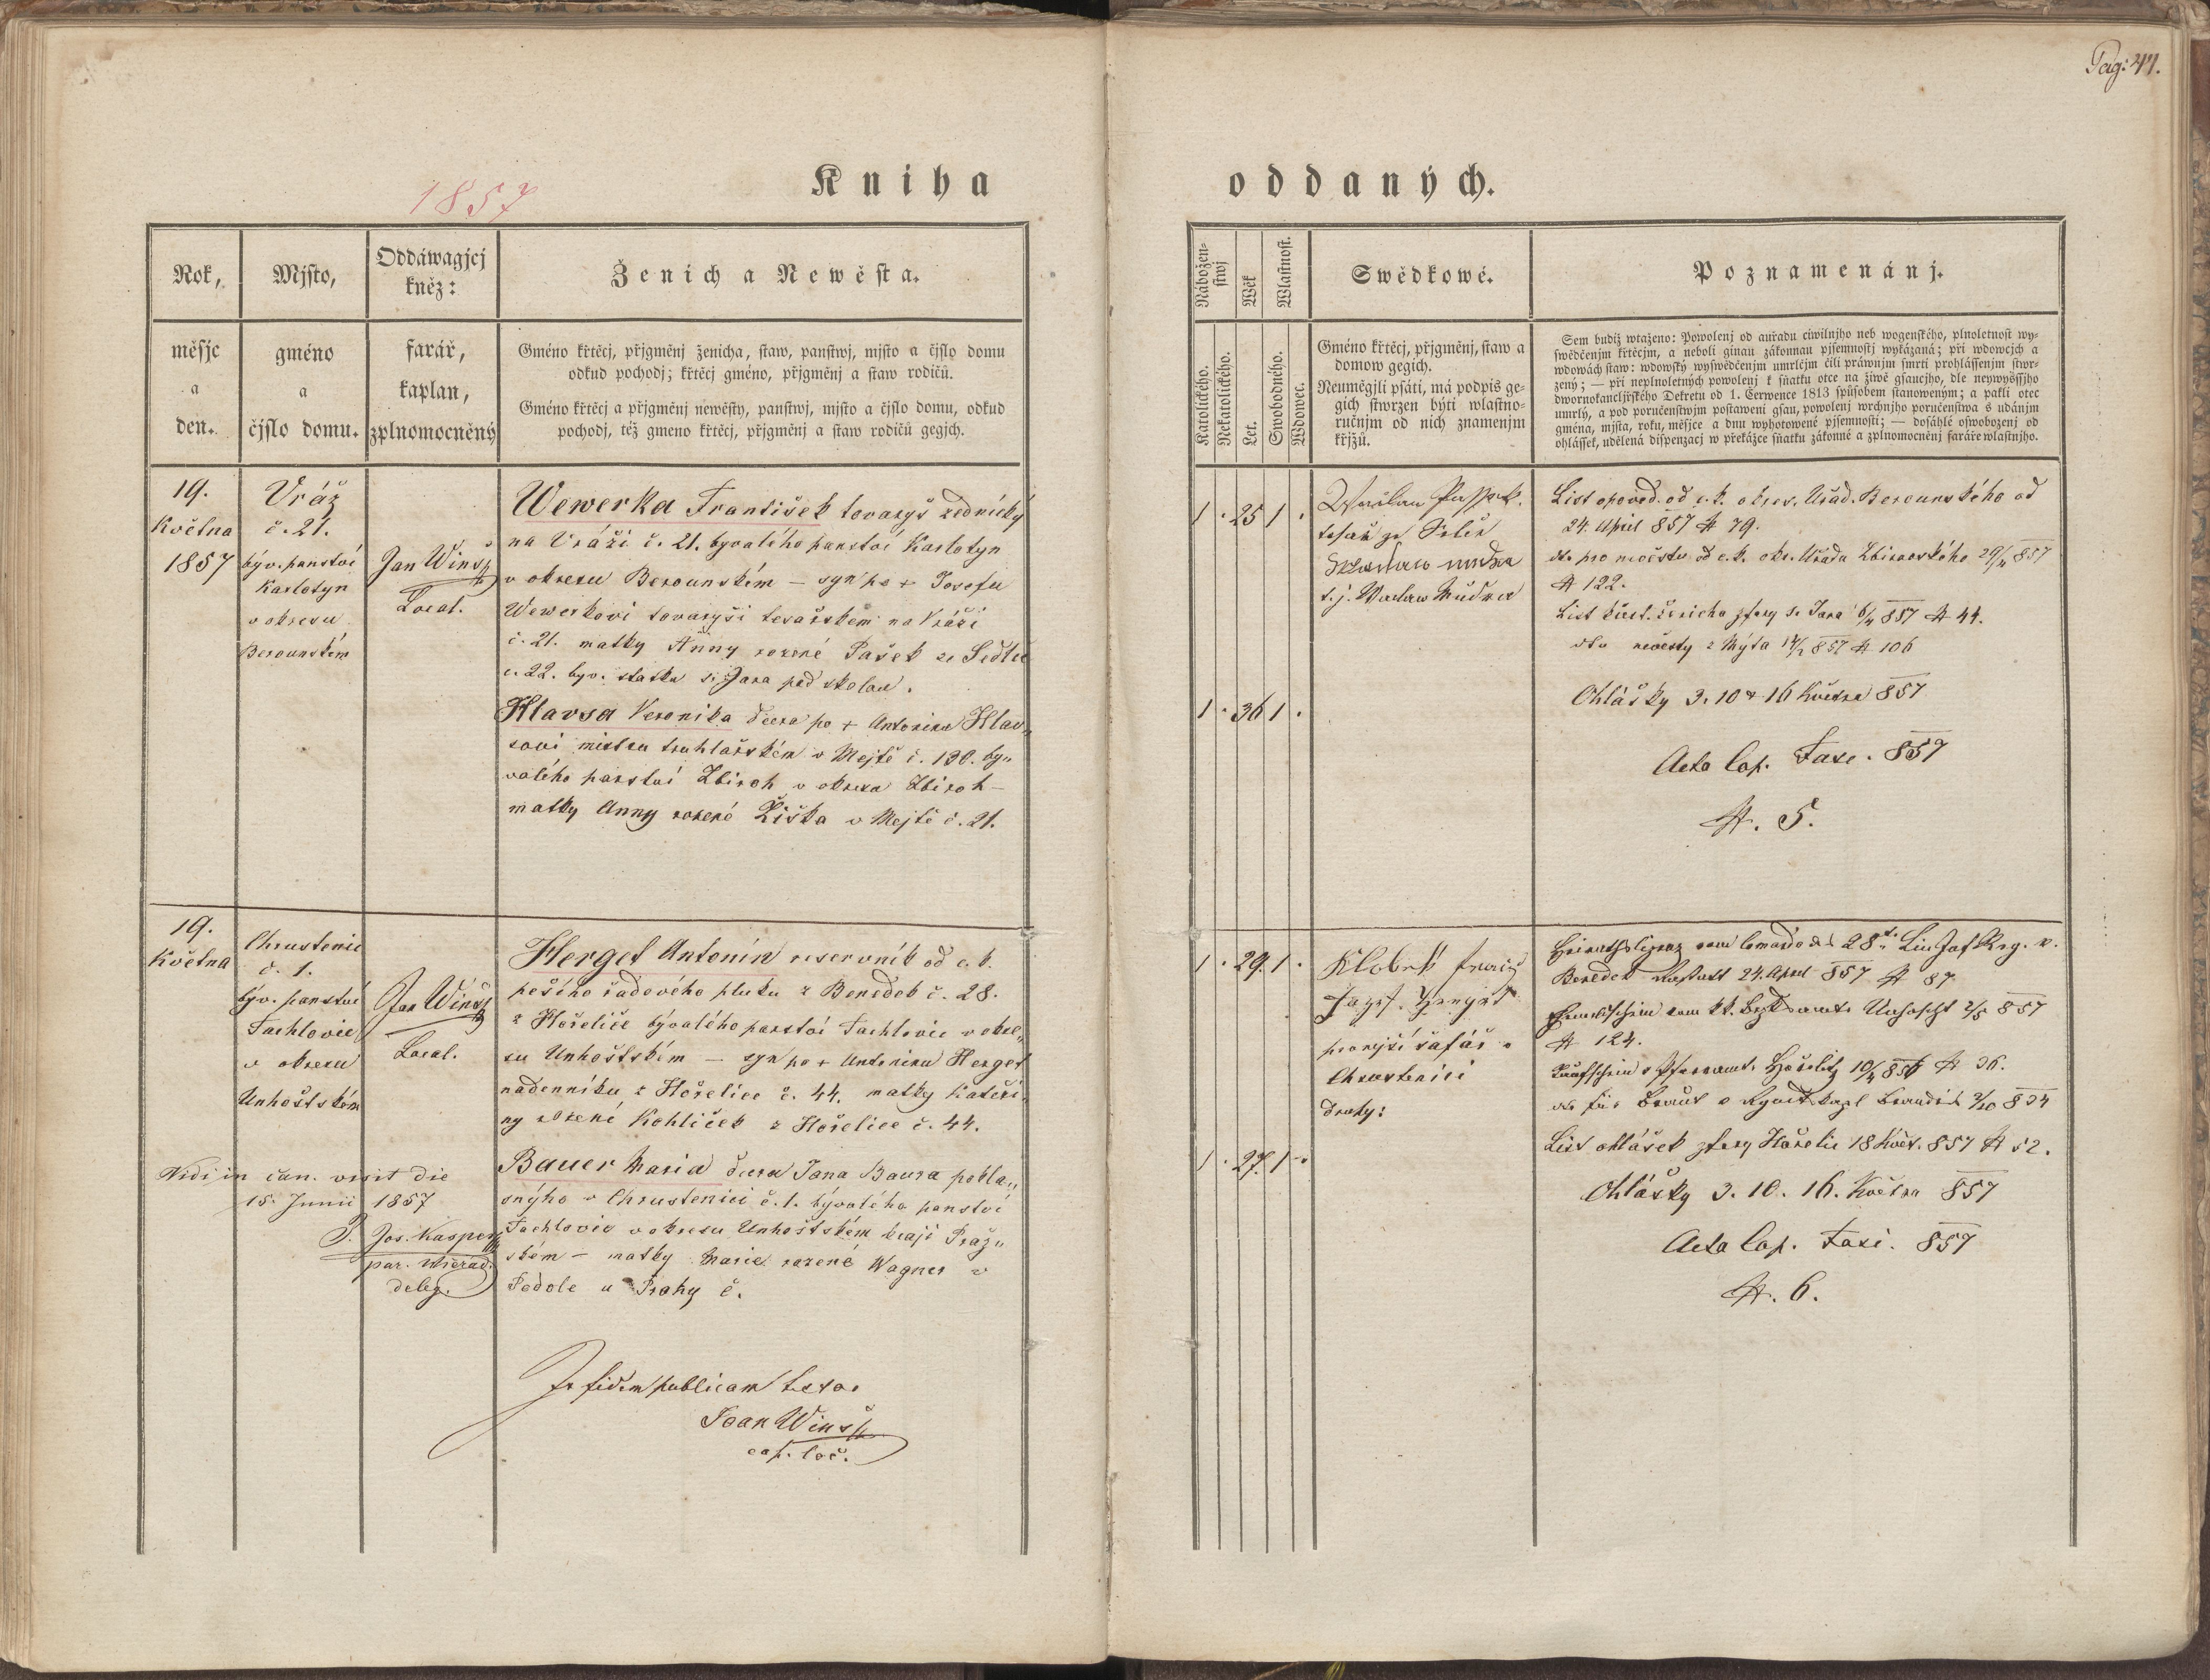 Pag: 47.
1857
Kniha
oddaných.
Rok,
měsjc
a
den.
Mjsto,
gméno
a
čjslo domu.
Oddáwagjcj
kněz:
farář,
kaplan,
zplnomocněný
Ženich a Newěsta.
Gméno křtěcj, přjgměnj ženicha, staw, panstwj, mjsto a čjslo domu
odkud pochodj; křtěcj gméno, přjgměnj a staw rodičů.
Gméno křtěcj a přjgměnj newěsty, panstwj, mjsto a čjslo domu, odkud
pochodj, též gmeno křtěcj, přjgměnj a staw rodičů gegjch.
Nábožen-
stwj
Wěk
Wlastnost.
Katolického.
Nekatolického.
Let.
Swobodného.
Wdowec.
Swědkowé.
Gméno křtěcj, přjgměnj, staw a
domow gegich.
Neuměgjli psáti, má podpis ge-
gich stwrzen býti wlastno-
ručnjm od nich znamenjm
křjžů.
Poznamenánj.
Sem budiž wtaženo: Powolenj od auřadu ciwilnjho neb wogenského, plnoletnost wy-
swědčenjm křtěcjm, a neboli ginau zákonnau pjsemnostj wykázaná; při wdowcjch a
wdowách staw: wdowský wyswědčenjm umrlčjm čili práwnjm smrti prohlássenjm stwr-
zený; — při neplnoletných powolenj k sňatku otce na žiwě gsaucjho, dle neywyššjho
dwornokancljřského Dekretu od 1. Čerwence 1813 spůsobem stanoweným; a pakli otec
umrlý, a pod poručenstwjm postaweni gsau, powolenj wrchnjho poručenstwa s udánjm
gména, mjsta, roku, měsjce a dnu wyhotowené pjsemnosti; — dosáhlé oswobozenj od
ohlássek, udělená dispenzacj w překážce sňatku zákonné a zplnomocněnj faráře wlastnjho.
19.
Května
1857
Vráž
č. 21.
býv. panství
Karlotyn
v okresu
Berounském
Jan Winš
Local.
Wewerka František tovaryš zednický
na Vráži č. 21. byvalého panství Karlotyn
v okresu Berounském — syn po + Josefu
Wewerkovi tovaryši tesařském na Vráži
č. 21. matky Anny rozené Pašek ze Sedlce
č. 22. byv. statku sv. Jana pod skalou.
Klavsa Veronika dcera po + Antonínu Klav-
sovi mistru truhlařském v Mejtě č. 130. by-
valého panství Zbiroh v okresu Zbiroh —
matky Anny rozené Liška v Mejtě č. 21.
1 . 25 1 .
1 . 36 1 .
tesař ze Sedlce
t. j. Waclaw Mudra
List opověd. od c. k. okres. Úřad. Berounského od
24. April 857 № 79.
dto pro nevěstu od c. k. okr. Úřadu Zbirovského 29/4 857
№ 122.
List křest. ženicha z fary Sv. Jana 6/4 857 № 44.
dto nevěsty z Mýta 14/2 857 № 106
Ohlášky 3. 10 + 16 Května 857
Acta Cap. Fasc. 857
№. 5.
19.
Května
Chrustenic
č. 1.
býv. panství
Tachlovic
v okresu
Unhoštském
Jan Winš
Local.
Herget Antonín reservník od c. k.
pešího řadového pluku z Benedek č. 28.
z Hořelice bývalého panství Tachlovic v okre-
su Unhoštském — syn po + Antonínu Herget
nadenníku z Hořelice č. 44. matky Kateři-
ny rozené Kohliček z Hořelice č. 44.
Bauer Maria dcera Jana Baura pokla-
sného v Chrustenici č. 1. bývalého panství
Tachlovic v okresu Unhoštském kraji Praž-
ském — matky Marie rozené Wagner v
Podole u Prahy č.
1 . 29. 1 .
1 . 27. 1 .
šafář v
Chrustenici
Heirathslizenz vom Comando des 28t. Lin Inf. Reg. v.
Benedek 24. April 857 № 87
vom kk. Bezirksamte Unhoscht 2/5 857
№ 124.
Taufschein v Pfarramte Hořelitz 10/4 857 № 36.
dto für Braut 854
List ohlášek z fary Hořelic 18 Květ. 857 № 52.
Ohlášky 3. 10. 16. Května 857
Acta Cap. Fasc. 857
№. 6.
Vidi in can. visit die
15. Junii 1857
P. Jos. Kasper
par.
deleg.
In fidem publicam testor
Joan Winš
cap. loc.